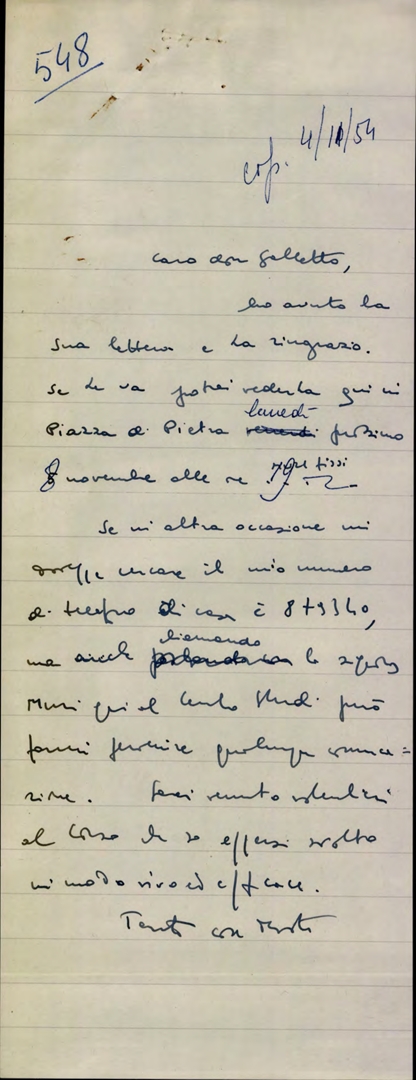 548
cop. 4/11/54
Caro don Galletto,
ho avuto la
Sua lettera e La ringrazio.
Se Le va potrei vederla qui in
Piazza di Pietra lunedì prossimo
8 novembre alle ore 19
Se in altra occasione mi
volesse cercare il mio numero
di telefono di casa è 879340,
ma anche chiamando la signora
qui al Centro Studi può
farmi pervenire qualunque comunica=
zione. Sarei venuto volentieri
al Corso che so essersi svolto
in modo vivo ed efficace.